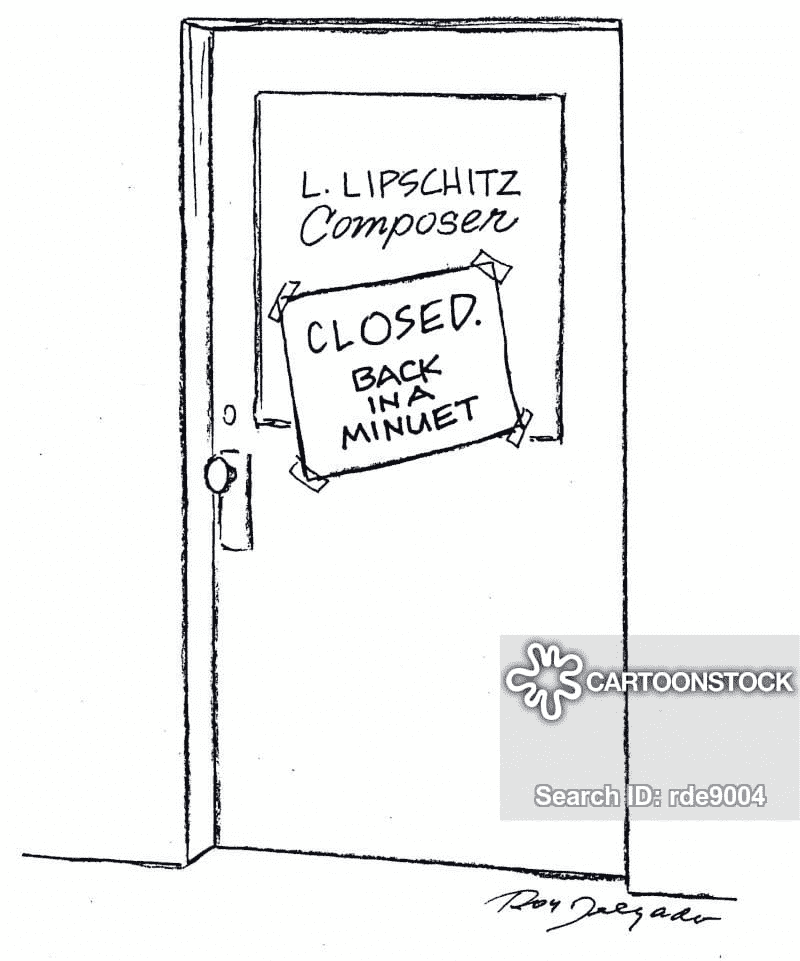 L. LIPSCHITZ
Composer
CLOSED.
BACK
IN A
MINUET
CARTOONSTOCK
Search ID: rde9004
Roy Delgado